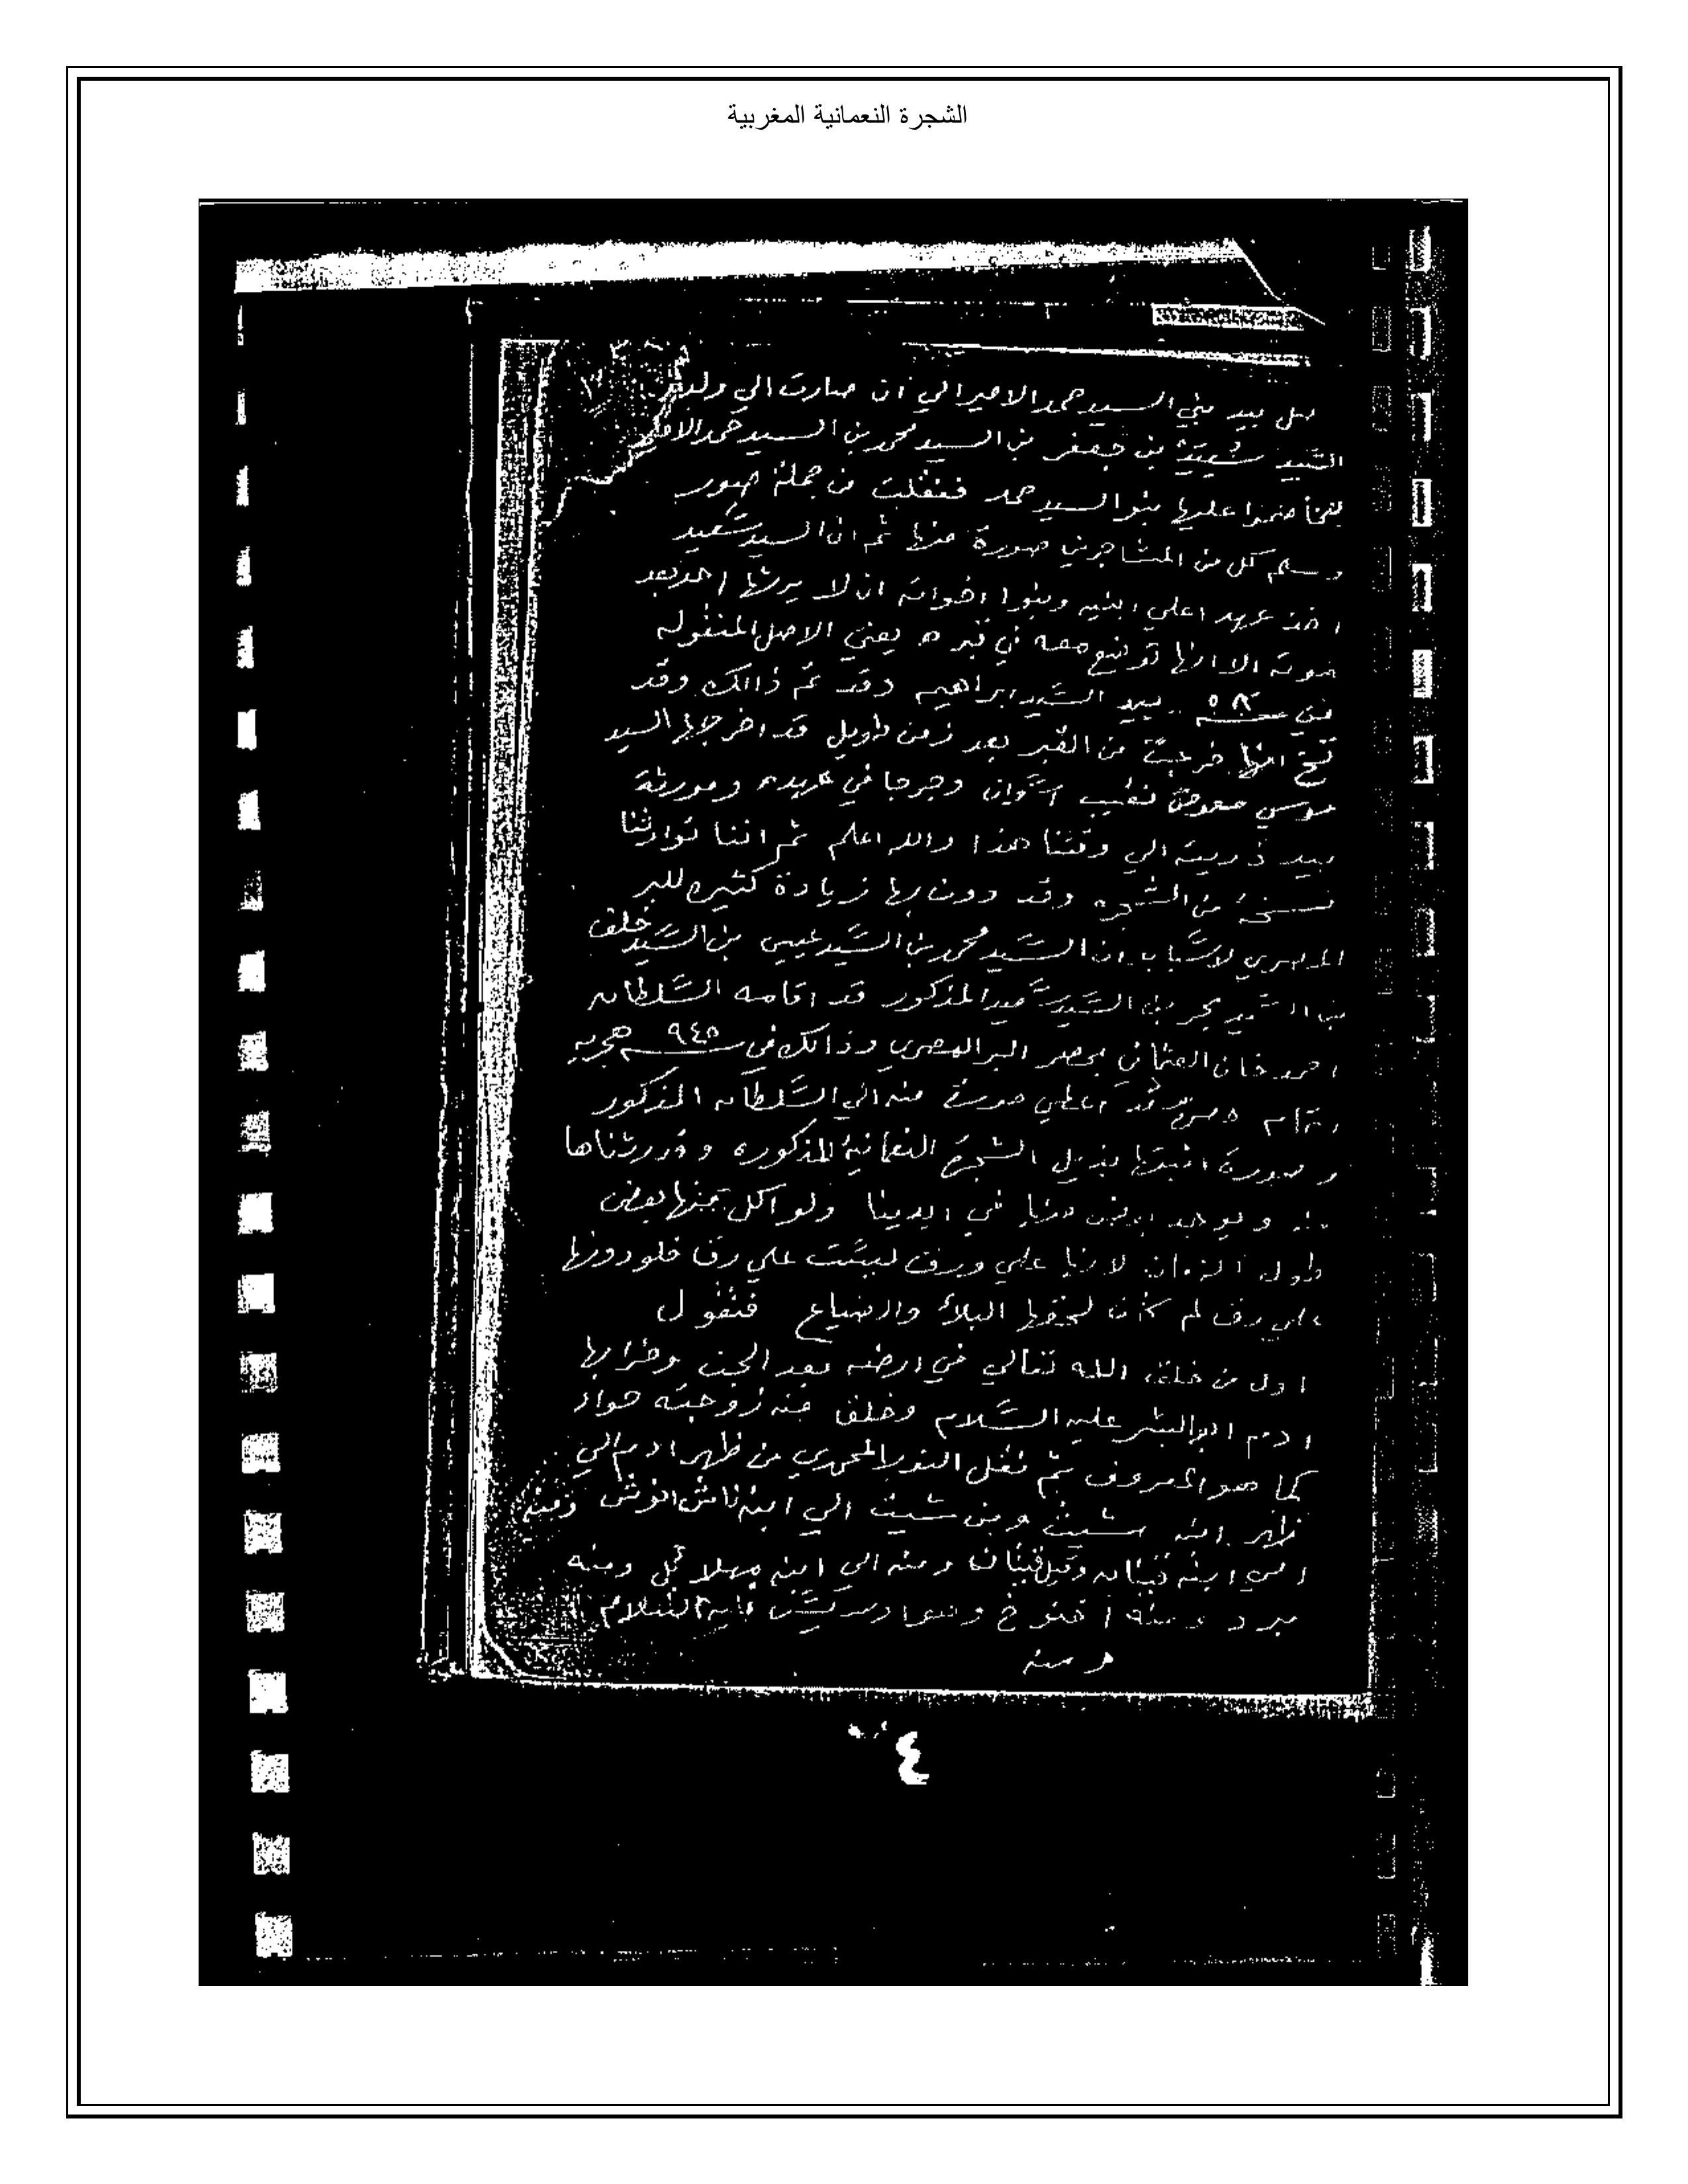 الشجرة النعمانية المغربية
بيد بني السيد حمد الامير الي ان صارت الي ولد
السيد بن جعفر بن السيد محمد بن السيد حمد الامير
عليها بنوا السيد حمد فنقلت من جملة صور
وسلم كل من المشاجرين صورة منها ثم ان السيد سعيد
اخذ عهد اعلي ابنيه وبنوا اخواته ان لا يرثها احد بعد
موته الا انها توضع معه في قبره يعني الاصل المنقوله
بيد السيد ابراهيم وقد تم ذالك وقد
صح انها خرجت من القبر بعد زمن طويل قد اخرجها السيد
موسي معوض نقيب اسوان وجرجا في عهده ومورثة
بيد ذريته الي وقتنا هذا والله اعلم ثم اننا توارثنا
نسخة من الشجره وقد دون بها زيادة كثيره للبر
المصري لاسباب ان السيد محمد بن السيد عيسي بن السيد خلف
بن السيد بحر بن السيد المذكور قد اقامه السلطان
احمد خان العثماني بمصر البر المصري وذالك في سنة ٩٤٥ هجريه
قد اعطي صورة منه الي السلطان المذكور
وصورة اثبتها بذيل الشجرة النعمانية المذكوره و ورثناها
في ايدينا ولو اكل منها بعض
طول الزمان لانها علي ورق ليست علي رق فلو دونها
علي رق لم كان لحقها البلاء والضياع فنقول
اول من خلق الله تعالي في ارضه بعد الجن وخرابها
ادم ابو البشر عليه السلام وخلق منه زوجته حواء
كما هو المعروف ثم نقل النور المحمدي من ظهر ادم الي
ظهر ابنه شيث ومن شيث الي ابنه ناش انوش ومنه
الي ابنه قينان وقيل قينان ومنه الي ابنه مهلائل ومنه
يرد ومنه اخنوخ وهو ادريس عليه السلام
ومنه
٤